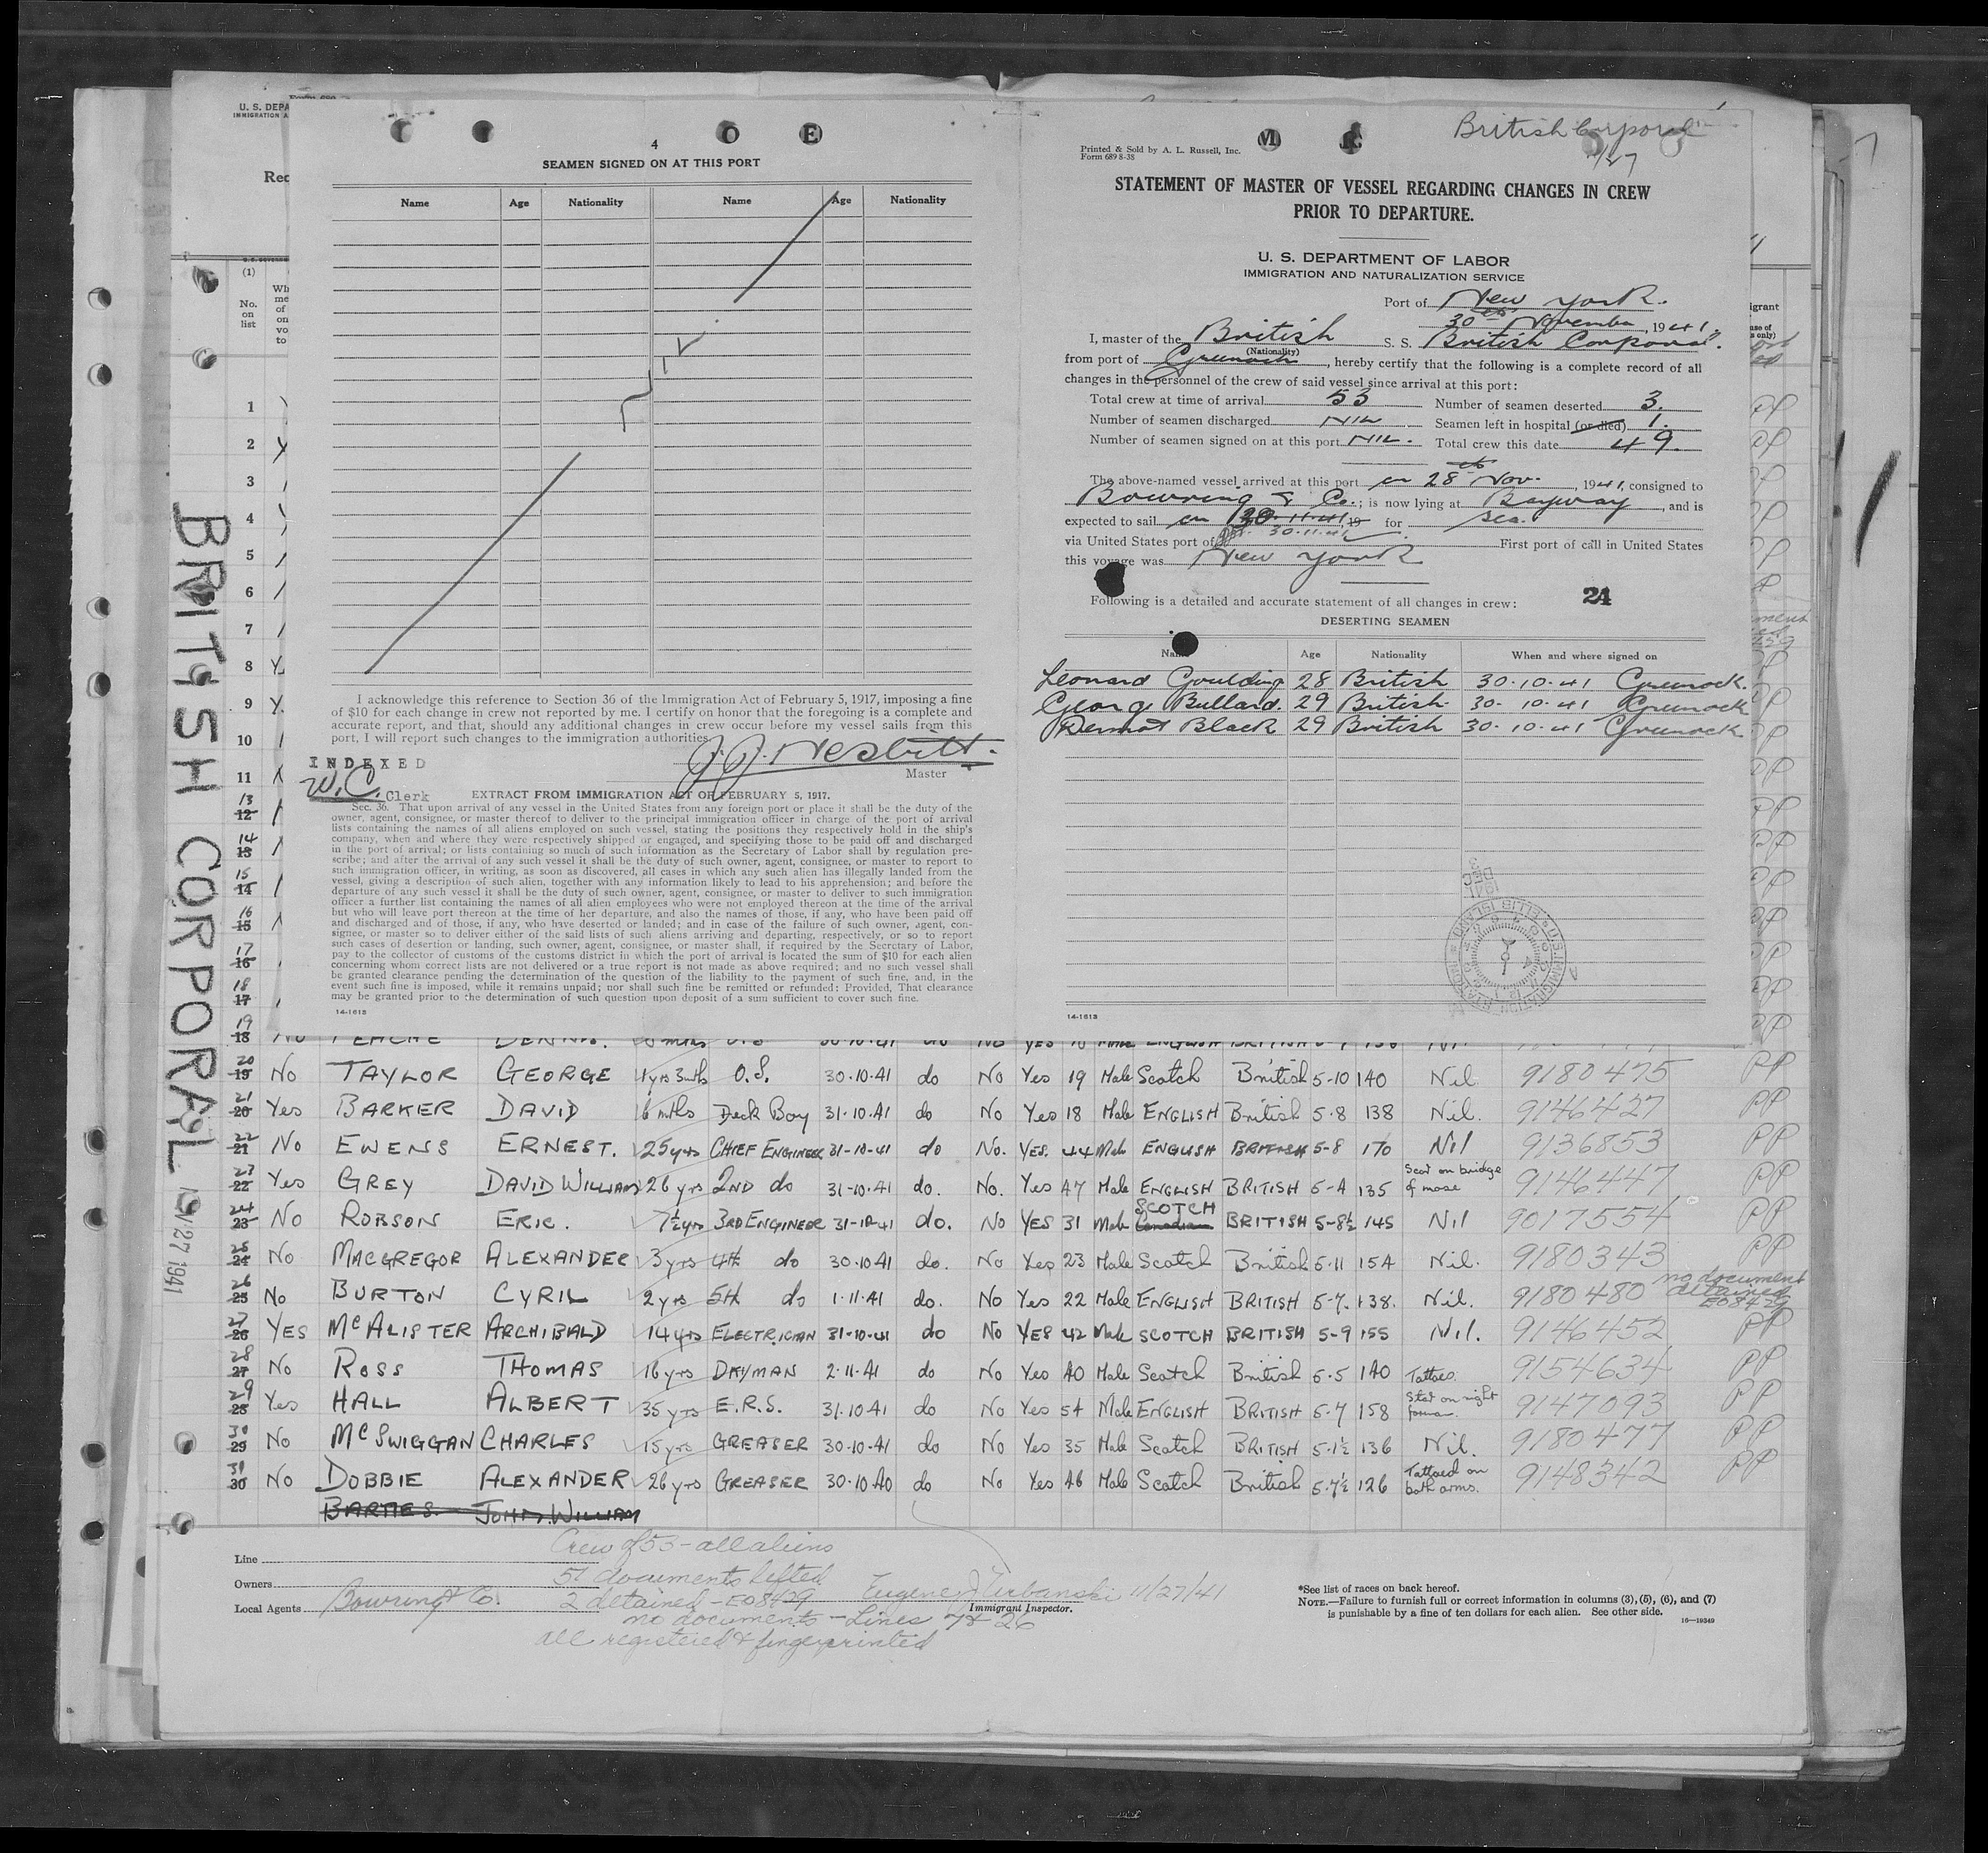 4
SEAMEN SIGNED ON AT THIS PORT
Name Age Nationality Name Age Nationality
I acknowledge this reference to Section 36 of the Immigration Act of February 5, 1917, imposing a fine
of $10 for each change in crew not reported by me. I certify on honor that the foregoing is a complete and
accurate report, and that, should any additional changes in crew occur before my vessel sails from this
port, I will report such changes to the immigration authorities.
J. J. Nesbitt.
Master
INDEXED
W.C. Clerk
EXTRACT FROM IMMIGRATION ACT OF FEBRUARY 5, 1917.
Sec. 36. That upon arrival of any vessel in the United States from any foreign port or place it shall be the duty of the
owner, agent, consignee, or master thereof to deliver to the principal immigration officer in charge of the port of arrival
lists containing the names of all aliens employed on such vessel, stating the positions they respectively hold in the ship's
company, when and where they were respectively shipped or engaged, and specifying those to be paid off and discharged
in the port of arrival; or lists containing so much of such information as the Secretary of Labor shall by regulation pre-
scribe; and after the arrival of any such vessel it shall be the duty of such owner, agent, consignee, or master to report to
such immigration officer, in writing, as soon as discovered, all cases in which any such alien has illegally landed from the
vessel, giving a description of such alien, together with any information likely to lead to his apprehension; and before the
departure of any such vessel it shall be the duty of such owner, agent, consignee, or master to deliver to such immigration
officer a further list containing the names of all alien employees who were not employed thereon at the time of the arrival
but who will leave port thereon at the time of her departure, and also the names of those, if any, who have been paid off
and discharged and of those, if any, who have deserted or landed; and in case of the failure of such owner, agent, con-
signee, or master so to deliver either of the said lists of such aliens arriving and departing, respectively, or so to report
such cases of desertion or landing, such owner, agent, consignee, or master shall, if required by the Secretary of Labor,
pay to the collector of customs of the customs district in which the port of arrival is located the sum of $10 for each alien
concerning whom correct lists are not delivered or a true report is not made as above required; and no such vessel shall
be granted clearance pending the determination of the question of the liability to the payment of such fine, and, in the
event such fine is imposed, while it remains unpaid; nor shall such fine be remitted or refunded: Provided, That clearance
may be granted prior to the determination of such question upon deposit of a sum sufficient to cover such fine.
14-1613
British Corporal
11/27
Printed & Sold by A. L. Russell, Inc.
Form 689 8-38
STATEMENT OF MASTER OF VESSEL REGARDING CHANGES IN CREW
PRIOR TO DEPARTURE.
U. S. DEPARTMENT OF LABOR
IMMIGRATION AND NATURALIZATION SERVICE
Port of New York.
30th November, 1941.
I, master of the British S. S. British Corporal
(Nationality)
from port of Greenock, hereby certify that the following is a complete record of all
changes in the personnel of the crew of said vessel since arrival at this port:
Total crew at time of arrival 53 Number of seamen deserted 3.
Number of seamen discharged NIL Seamen left in hospital (or died) 1.
Number of seamen signed on at this port NIL. Total crew this date 49.
The above-named vessel arrived at this port on 28th Nov., 1941, consigned to
Bowring & Co.; is now lying at Bayway, and is
expected to sail on 30.11.41 19 for sea.
via United States port of 30.11.41 First port of call in United States
this voyage was New York
Following is a detailed and accurate statement of all changes in crew: 24
DESERTING SEAMEN
Name Age Nationality When and where signed on
Leonard Goulding 28 British 30.10.41 Greenock.
George Bullard. 29 British 30.10.41 Greenock
Dermot Black 29 British 30.10.41 Greenock.
1941 DEC 3
U.S. IMMIGRATION STATION ELLIS ISLAND
14-1613
U. S. DEPA
IMMIGRATION A
Rec
(1)
No. on list
1
2
3
4
5
6
7
8
9
10
11
13 12
14 13
15 14
16 15
17 16
18 17
19 18
BRITISH CORPORAL NOV 27 1941
20 19 No TAYLOR GEORGE 1yr 3mths O.S. 30.10.41 do No Yes 19 Male Scotch British 5-10 140 Nil 9180475 PP
21 20 Yes BARKER DAVID 6 mths Deck Boy 31.10.41 do No Yes 18 Male ENGLISH British 5-8 138 Nil. 9146427 PP
22 21 No EWENS ERNEST. 25yrs CHIEF ENGINEER 31-10-41 do No. YES. 44 Male ENGLISH BRITISH 5-8 170 Nil 9136853 PP
23 22 Yes GREY DAVID WILLIAM 26 yrs 2ND do 31-10-41 do. No. Yes 47 Male ENGLISH BRITISH 5-4 135 Scar on bridge of nose 9146447 PP
24 23 No ROBSON ERIC. 7½yrs 3RD ENGINEER 31-10-41 do. No YES 31 Male Canadian SCOTCH BRITISH 5-8½ 145 Nil 9017554 PP
25 24 No MACGREGOR ALEXANDER 3yrs 4th do 30.10.41 do. No Yes 23 Male Scotch British 5-11 154 Nil. 9180343 PP
26 25 No BURTON CYRIL 2yrs 5th do 1.11.41 do. No Yes 22 Male ENGLISH BRITISH 5-7. 138. Nil. 9180480 no document detained E08429
27 26 YES McALISTER ARCHIBALD 14yrs ELECTRICIAN 31-10-41 do No YES 42 Male SCOTCH BRITISH 5-9 155 Nil. 9146452 PP
28 27 No ROSS THOMAS 16yrs DKYMAN 2.11.41 do No Yes 40 Male Scotch British 5.5 140 Tattoes. 9154634 PP
29 28 Yes HALL ALBERT 35yrs E.R.S. 31.10.41 do No Yes 54 Male ENGLISH BRITISH 5-7 158 on right 9147093 PP
30 29 No McSWIGGAN CHARLES 15yrs GREASER 30-10.41 do No Yes 35 Male Scotch BRITISH 5.1½ 136 Nil. 9180477 PP
31 30 No DOBBIE ALEXANDER 26yrs GREASER 30.10.40 do No Yes 46 Male Scotch British 5.7½ 126 Tattoed on both arms. 9148342 PP
JOHN. WILLIAM
Line
Owners
Local Agents Bowring & Co.
Crew of 53 - all aliens
51 documents lifted
2 detained - E08429
no documents - Lines 7 & 26
all registered & fingerprinted
Eugene J Urbanski 11/27/41
Immigrant Inspector.
*See list of races on back hereof.
NOTE.—Failure to furnish full or correct information in columns (3), (5), (6), and (7)
is punishable by a fine of ten dollars for each alien. See other side.
16—19349